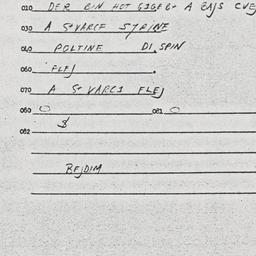 020 DER BIN HOT GIGEBN A BAJS
030 A STARCE STRINE
040 POLTINE DI SPIN
060 FLEJ .
070 A STARCI FLEJ
080 O 081 O
082
BEJDIM